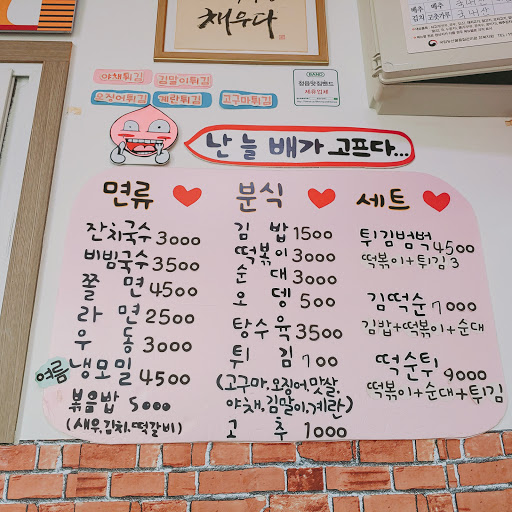 채우다
배추 배추 국내산
김치 고춧가루 국내산
야채튀김 김말이튀김
오징어튀김 계란튀김 고구마튀김
BAND
제휴업체
난 늘 배가 고프다...
면류
잔치국수 3000
비빔국수 3500
쫄면 4500
라면 2500
우동 3000
여름 냉모밀 4500
볶음밥 5000
(새우,김치,떡갈비)
분식
김밥 1500
떡볶이 3000
순대 3000
오뎅 500
탕수육 3500
튀김 700
(고구마,오징어,맛살,
야채,김말이,계란)
고추 1000
세트
튀김범벅 4500
떡볶이+튀김3
김떡순 7000
김밥+떡볶이+순대
떡순튀 9000
떡볶이+순대+튀김